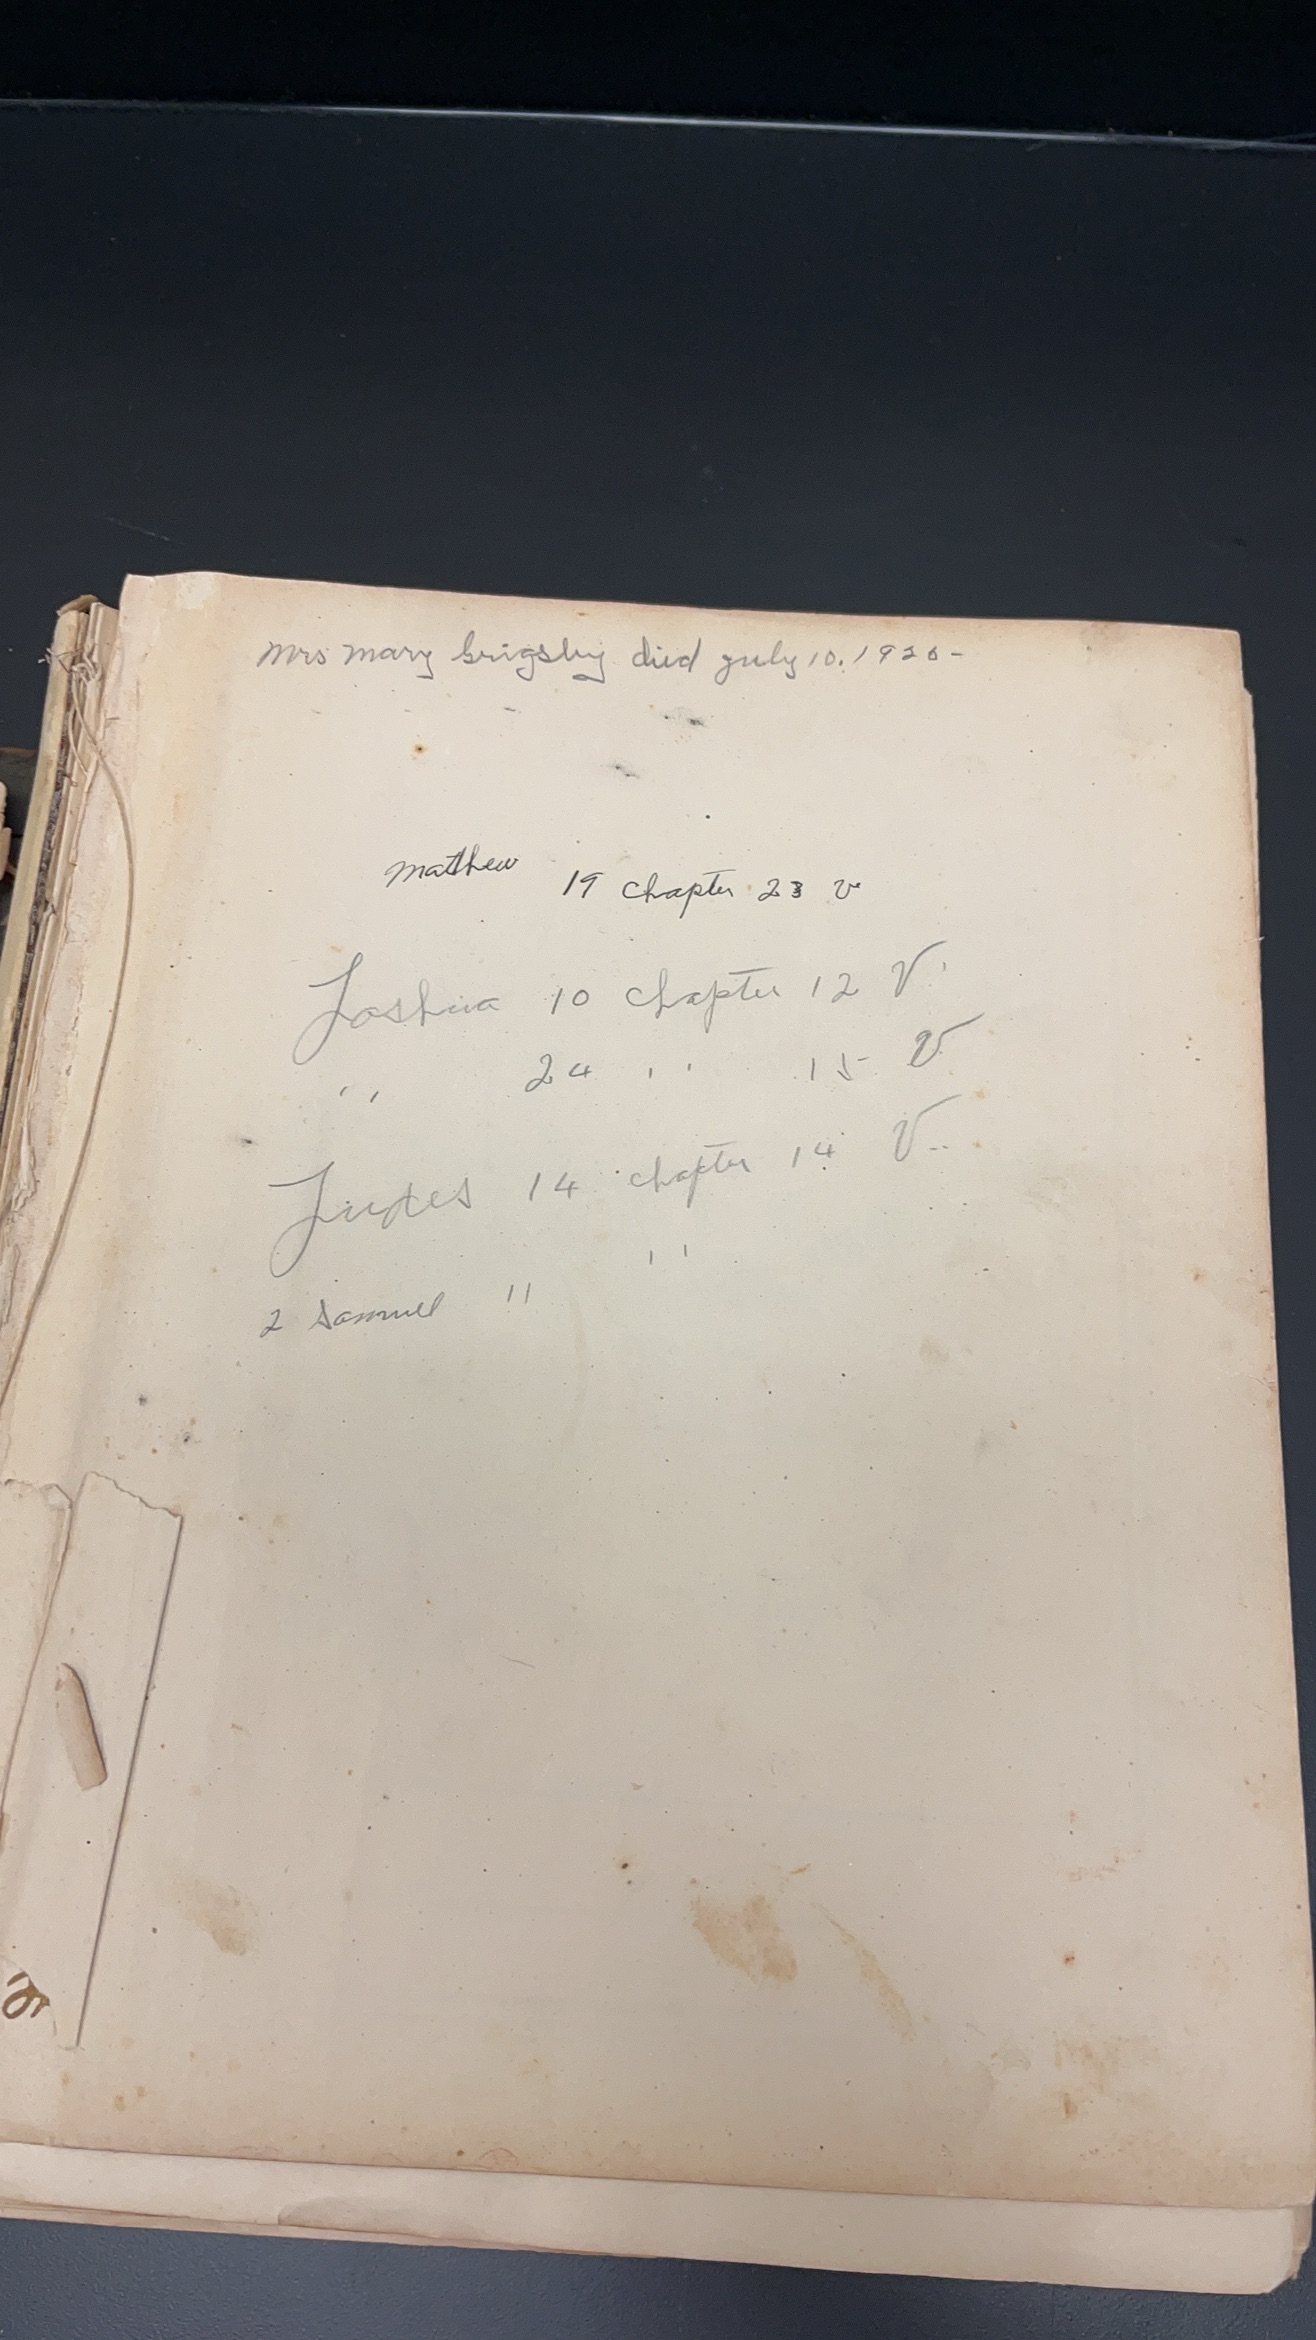 Mrs Mary Grigsby died July 10. 1920-
Matthew 19 chapter 23 v
Joshua 10 chapter 12 V.
" 24 " 15 V
Judes 14 chapter 14 V..
2 Samuel 11 "